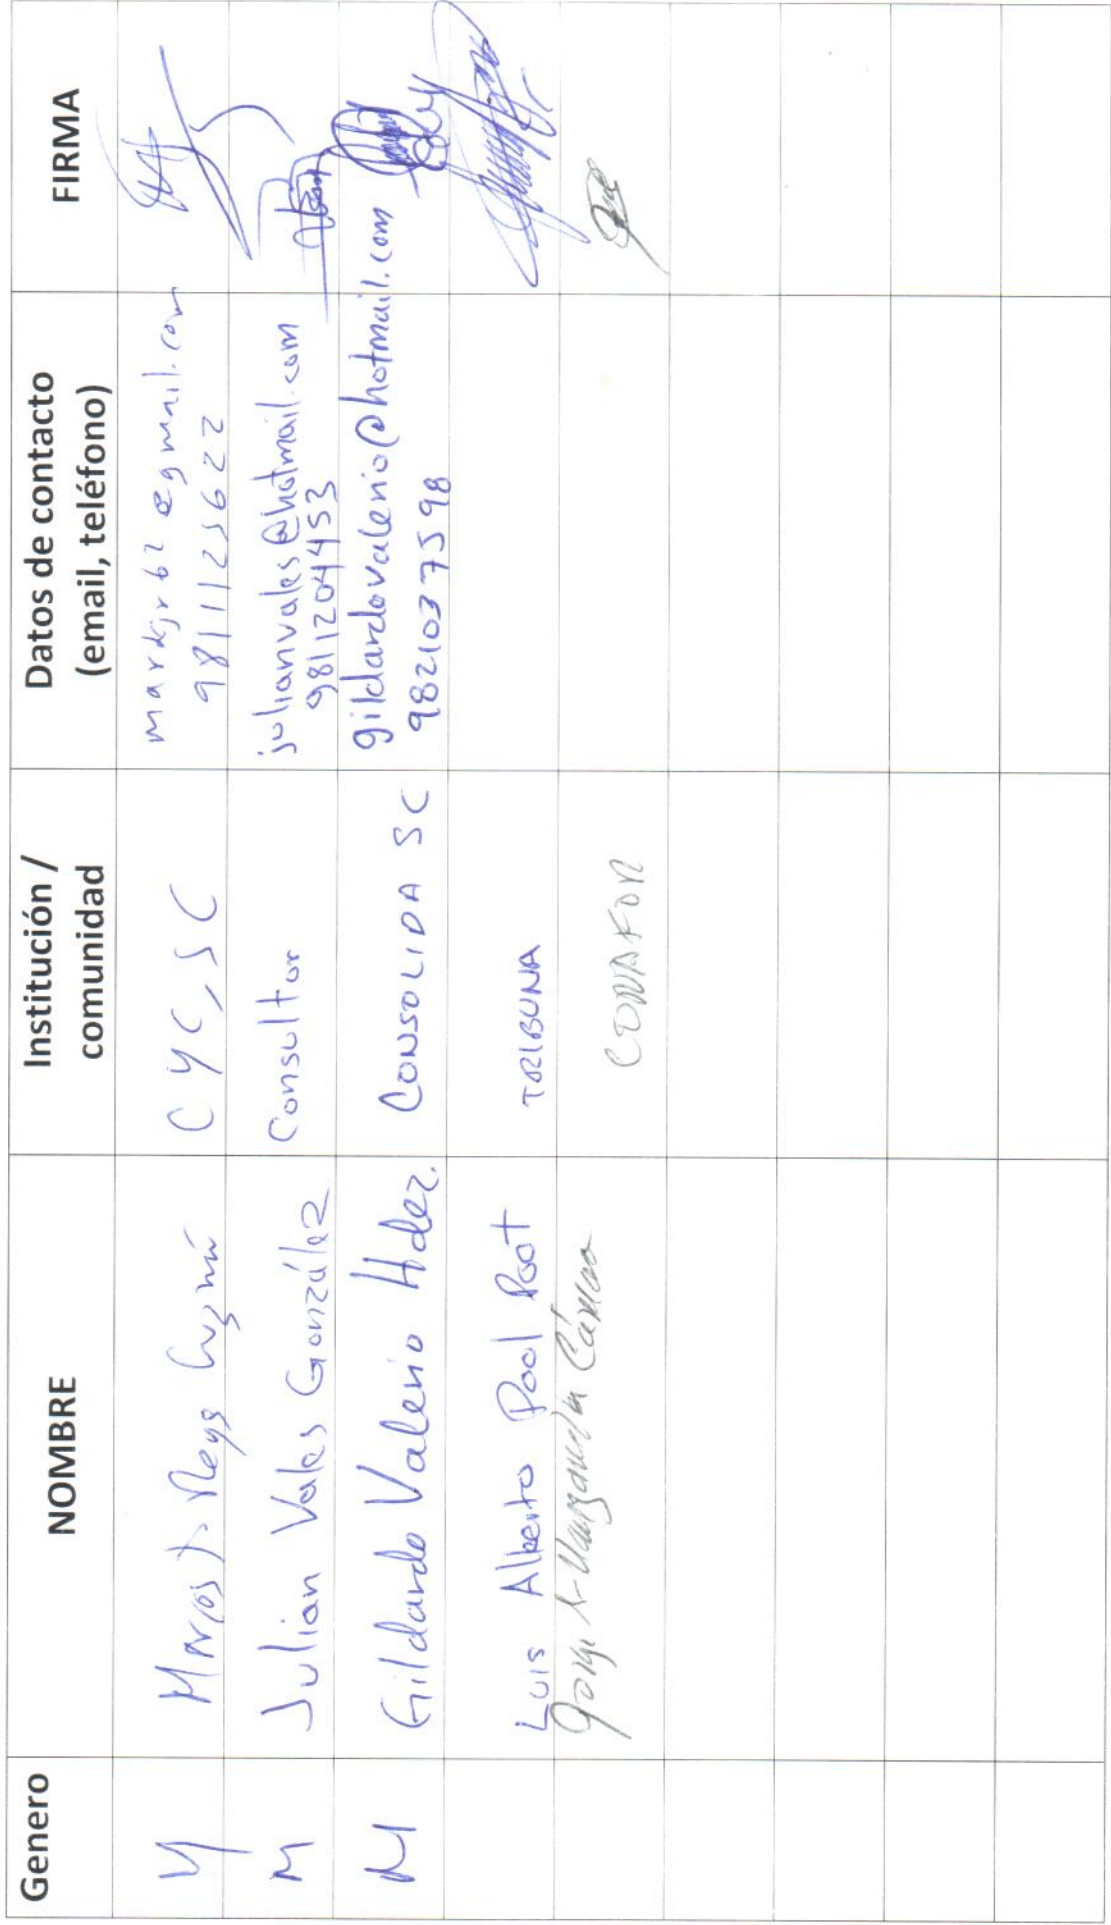 Genero NOMBRE Institución / comunidad Datos de contacto (email, teléfono) FIRMA
M Marcos J. Reyes CYC, SC
9811125622
M Julian Vales González Consultor julianvales@hotmail.com
9811204453
M Gildardo Valerio Hdez. CONSOLIDA SC gildardovalerio@hotmail.com
9821037598
Luis Alberto Pool Poot TRIBUNA
CONAFOR